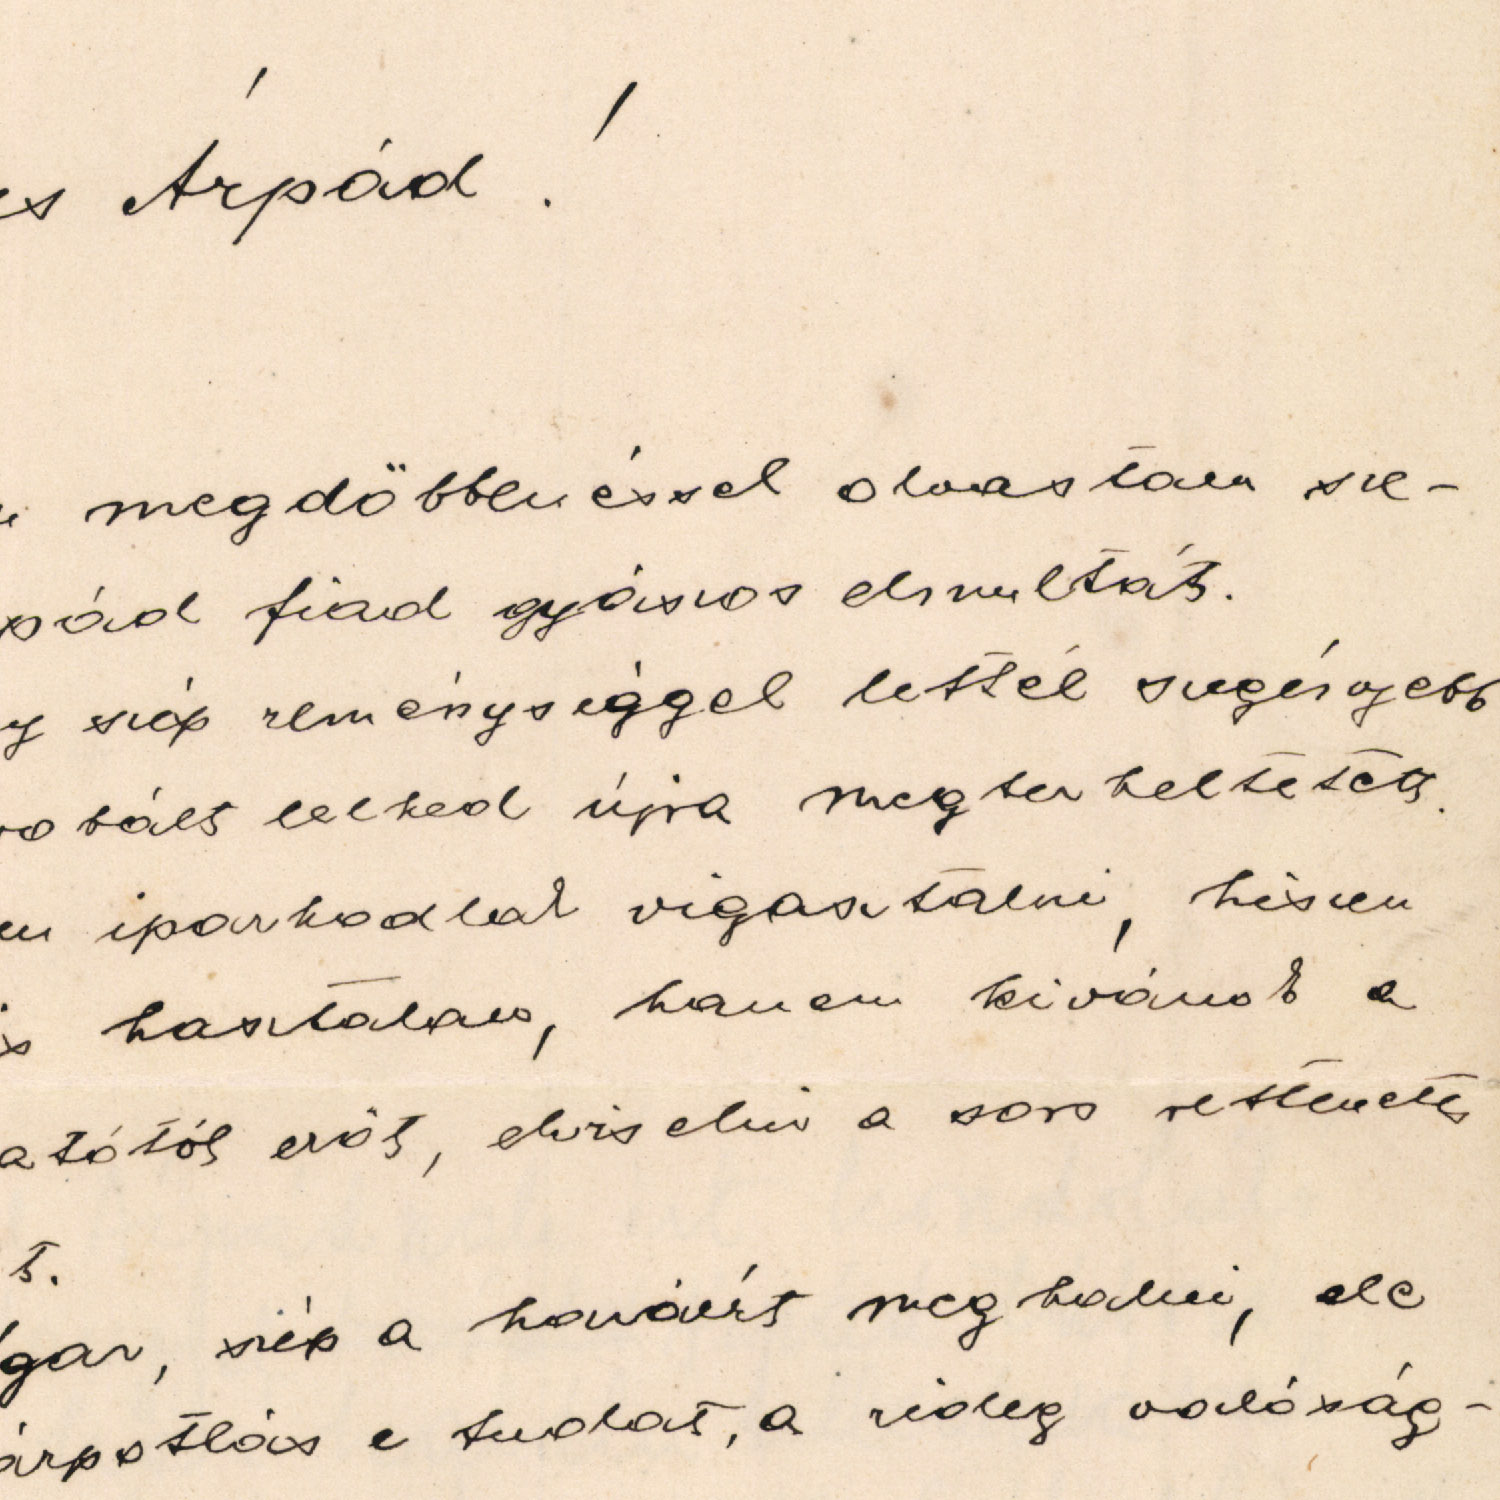 es Árpád!
megdöbbenéssel olvastam sze-
pád fiad gyászos elmultát.
y szép reménységgel lettél szegényebb
robált lelked újra megterheltetett.
iparkodlak vigasztalni, hiszen
is hasztalan, hanem kivánok a
atótól erőt, elviselni a sors rettenetes
t.
gar, szép a hazáért meghalni, de
árpótlás e tudat, a rideg valóság-